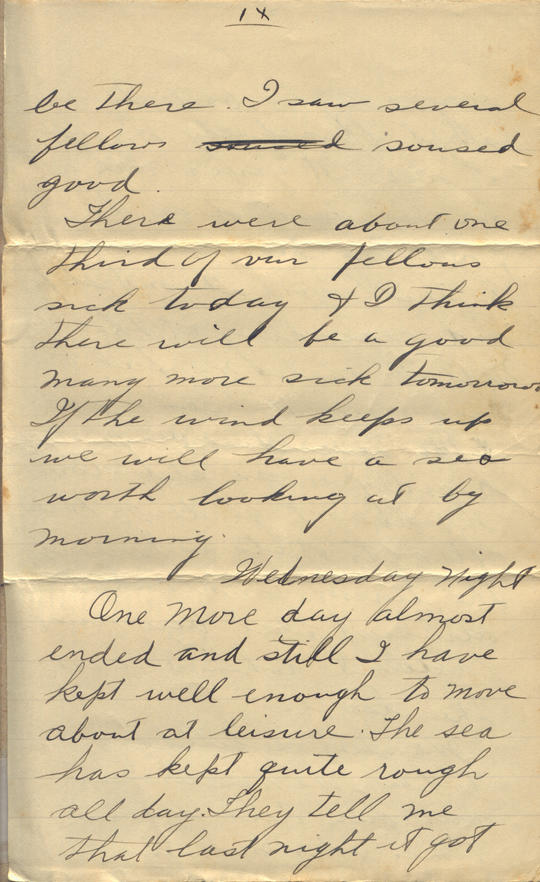 1X
be there. I saw several
fellows soused soused
good.
There were about one
third of our fellows
sick today & I think
there will be a good
many more sick tomorrow
If the wind keeps up
we will have a sea
worth looking at by
morning.
Wednesday Night
One more day almost
ended and still I have
kept well enough to move
about at leisure. The sea
has kept quite rough
all day. They tell me
that last night it got